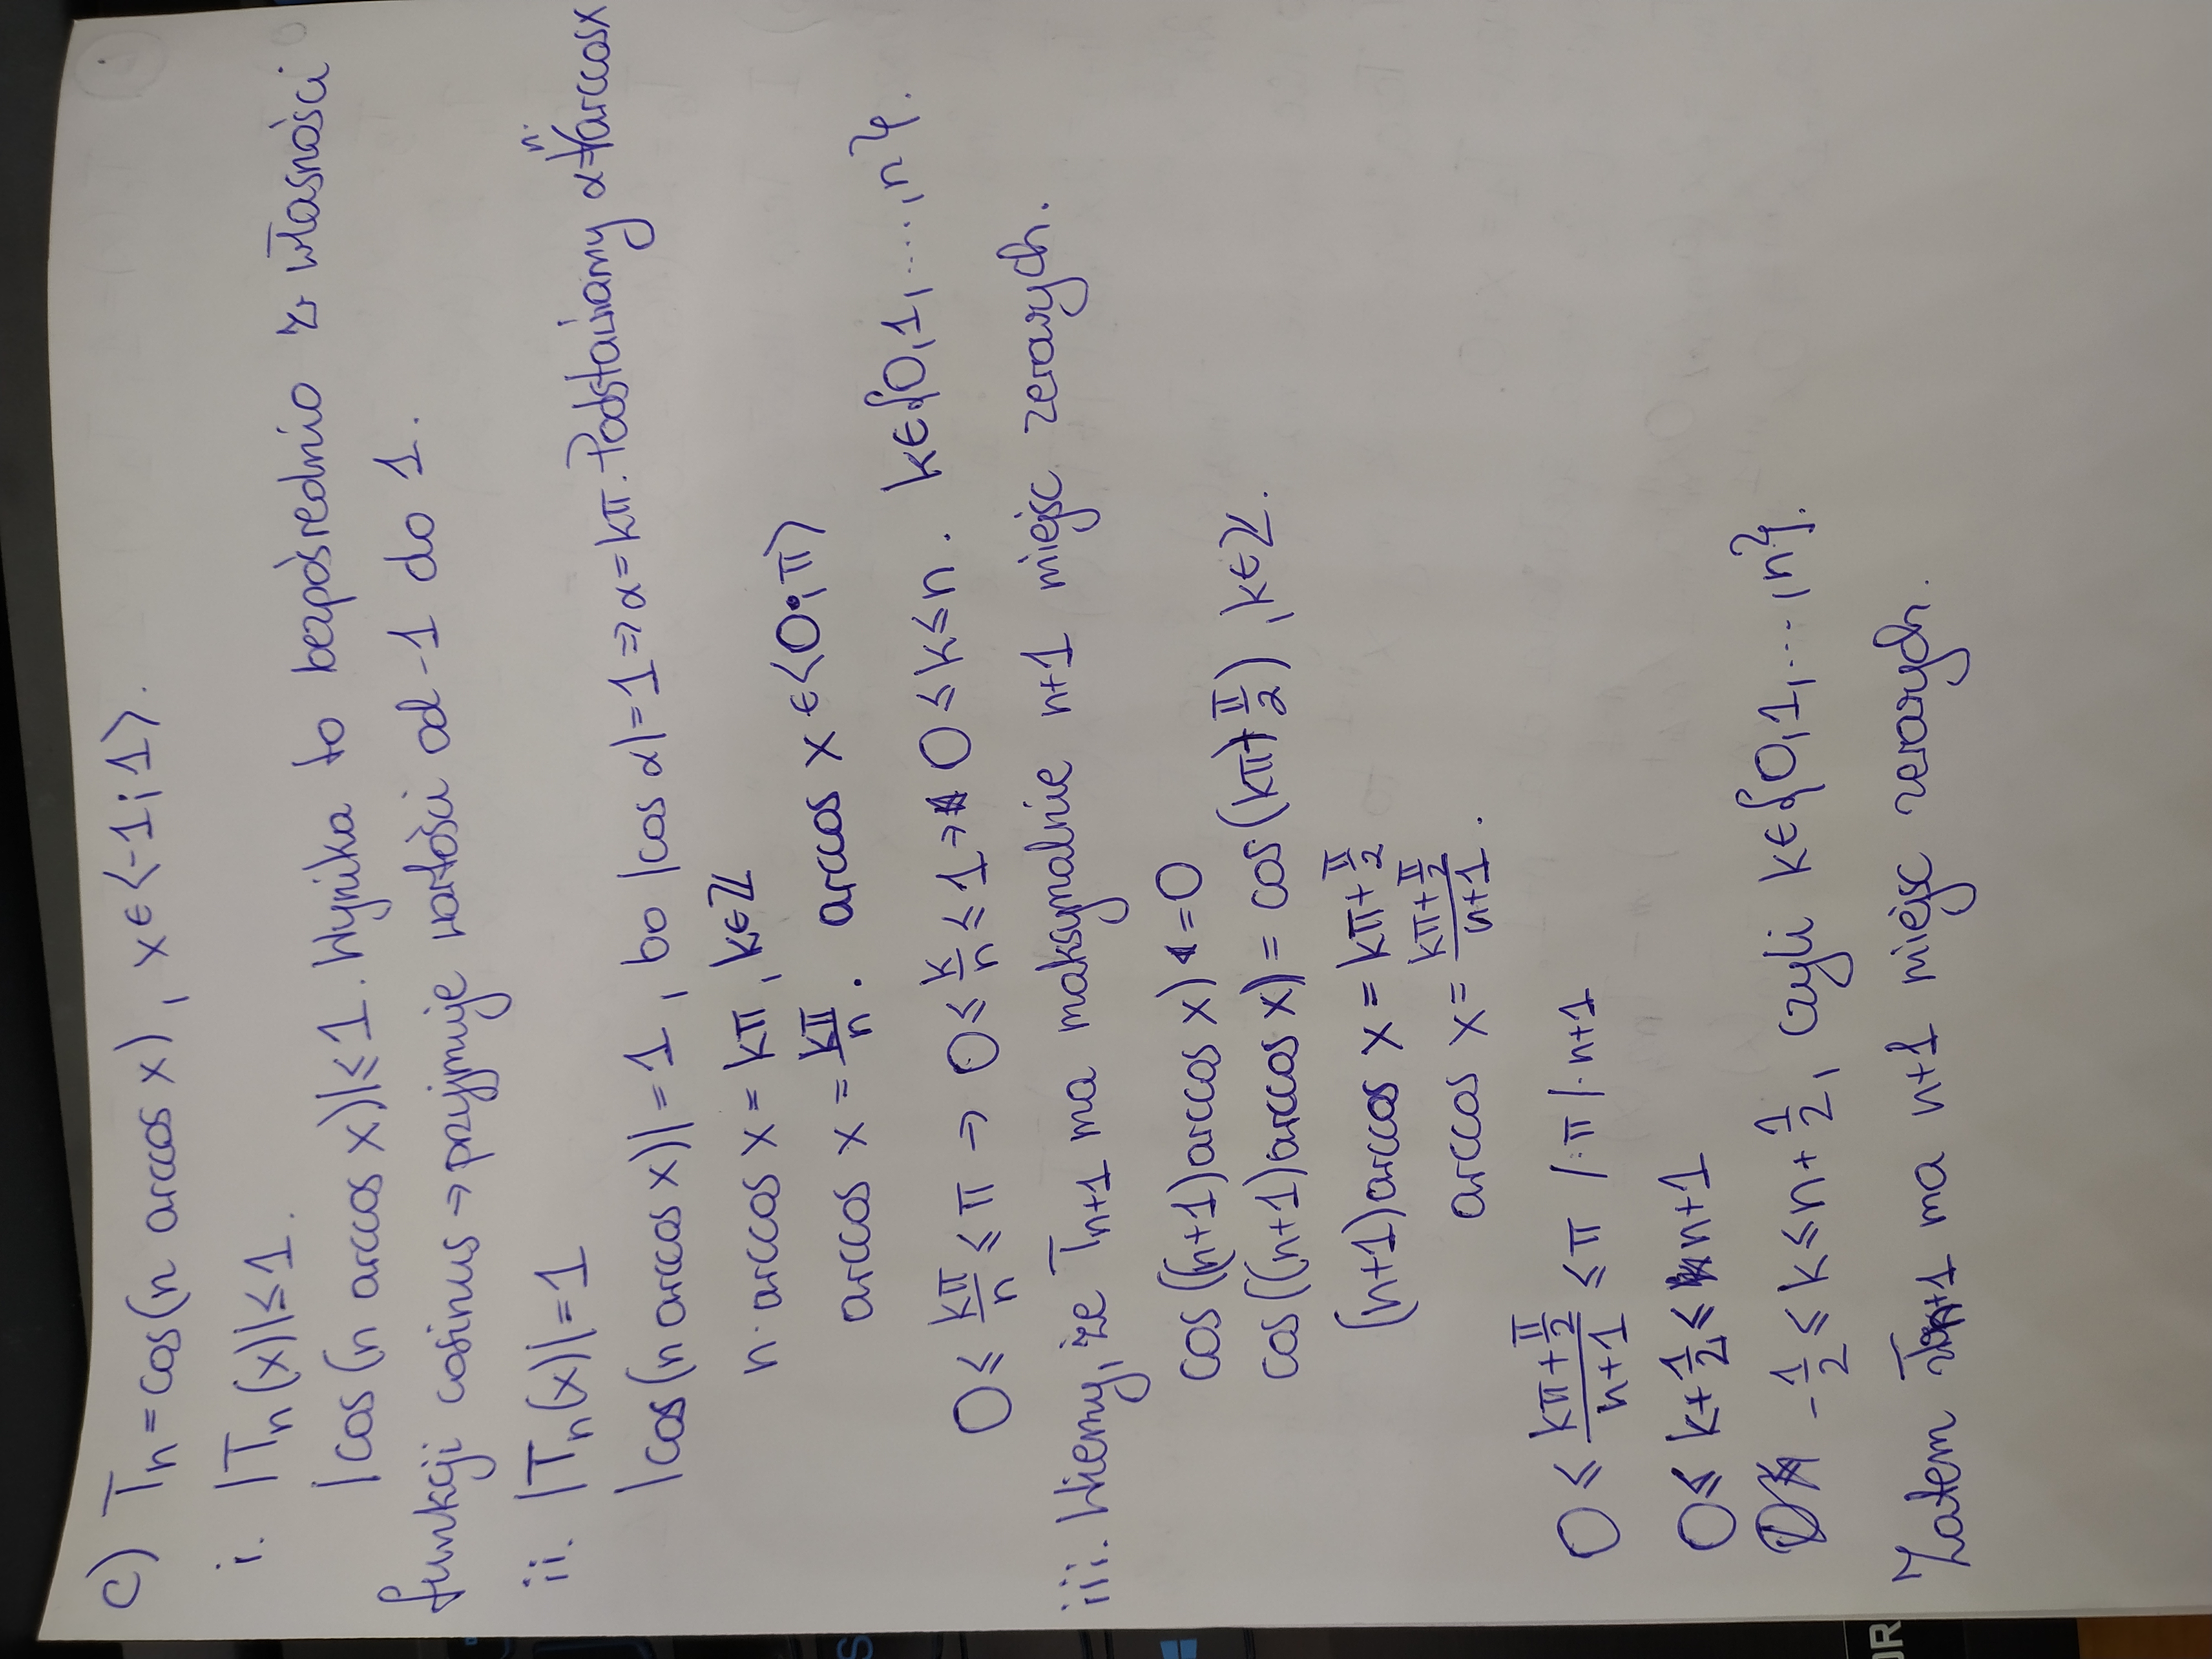 c) Tₙ = cos(n arccos x), x∈⟨-1;1⟩.
i. |Tₙ(x)|≤1.
|cos(n arccos x)|≤1. Wynika to bezpośrednio z własności
funkcji cosinus → przyjmuje wartości od -1 do 1.
ii. |Tₙ(x)|=1
|cos(n arccos x)| = 1, bo |cos α|=1 ⇒ α = kπ. Podstawiamy α = n·arccos x
n·arccos x = kπ, k∈ℤ
arccos x = kπ/n. arccos x ∈⟨0;π⟩
0 ≤ kπ/n ≤ π → 0 ≤ k/n ≤ 1 → 0 ≤ k ≤ n. k∈{0,1,....,n}.
iii. Wiemy, że Tₙ₊₁ ma maksymalnie n+1 miejsc zerowych.
cos((n+1)arccos x) = 0
cos((n+1)arccos x) = cos(kπ + π/2), k∈ℤ.
(n+1)arccos x = kπ + π/2
arccos x = (kπ + π/2)/(n+1).
0 ≤ (kπ + π/2)/(n+1) ≤ π /:π /· n+1
0 ≤ k + 1/2 ≤ n+1
-1/2 ≤ k ≤ n + 1/2, czyli k∈{0,1,...,n}.
Zatem Tₙ₊₁ ma n+1 miejsc zerowych.